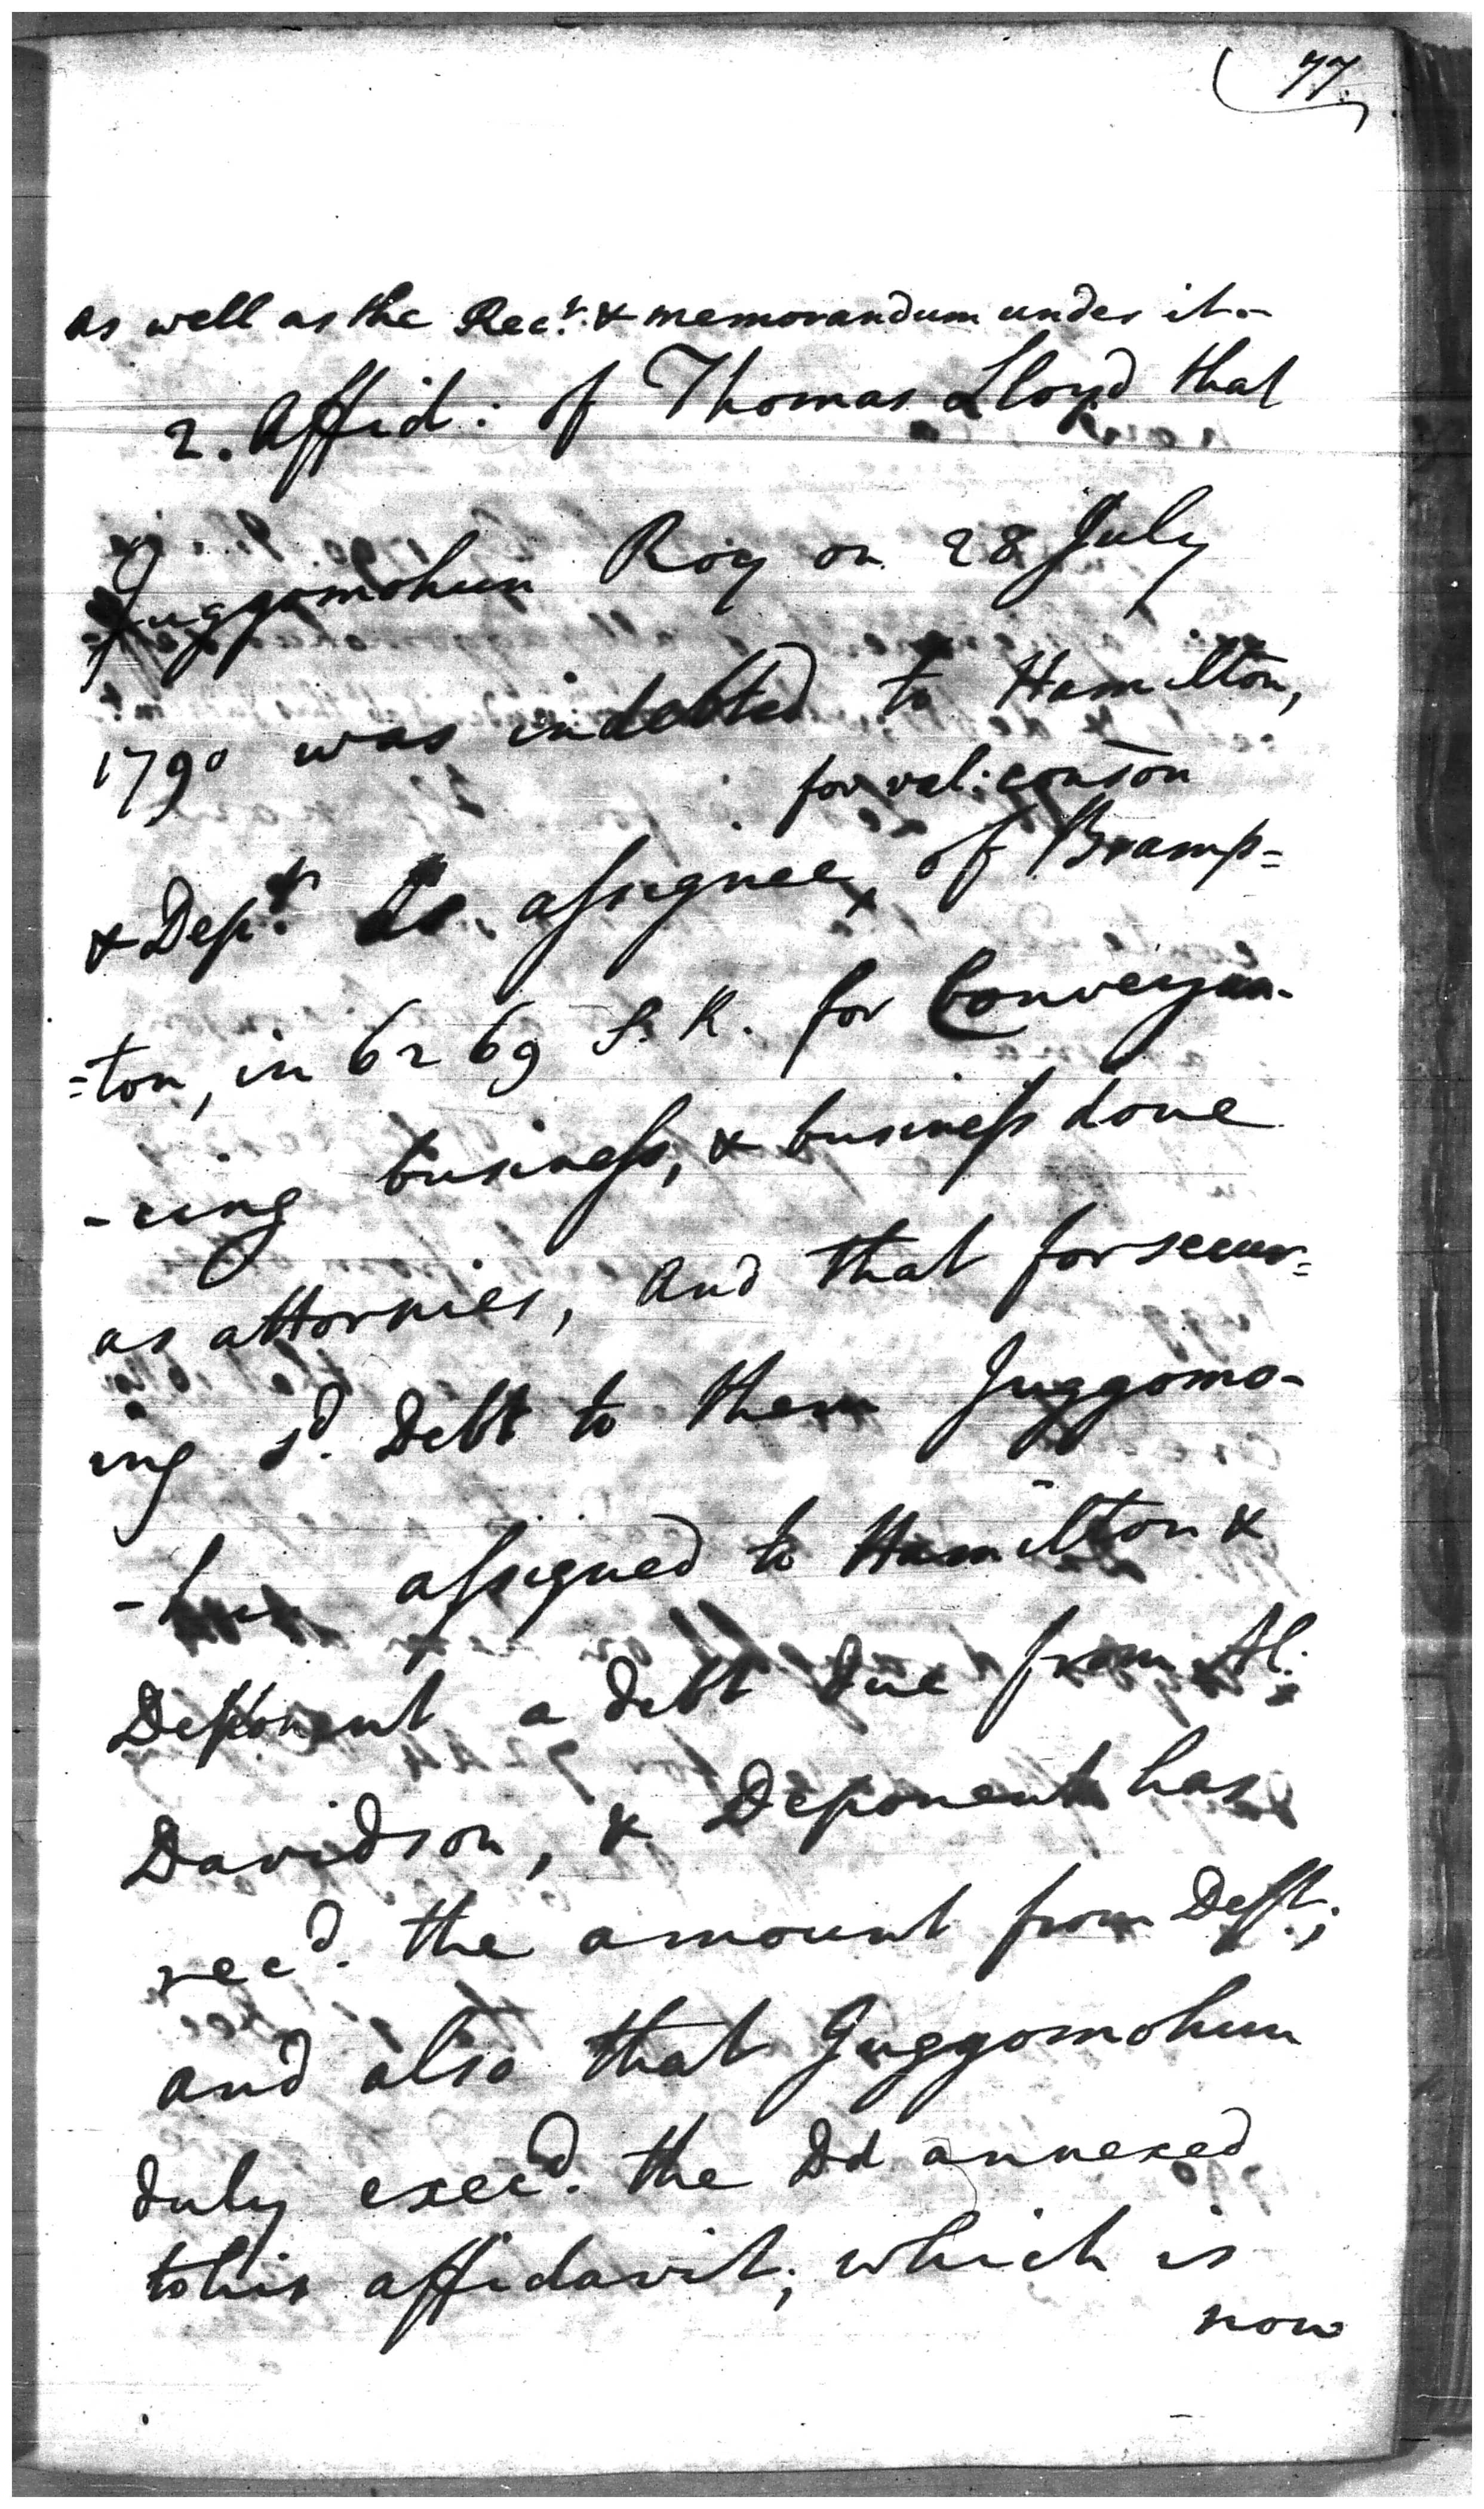 77.
as well as the Rec.t & memorandum under it.-
2. Affid: of Thomas Lloyd that
Juggomohun Roy on 28 July
1790 was indebted to Hamilton,
for val: conson
& Dep.t as assignee x of Bramp=
=ton, in 6269 S. R. for Conveyan-
-cing business, & business done
as attornies, and that for secur=
ing s.d Debt to them Juggomo-
-hun assigned to Hamilton &
Deponent a debt due from Al:
Davidson, & Deponent has
rec.d the amount from Deft;
and also that Juggomohun
duly exec.d the Dd annexed
to his affidavit; which is
now